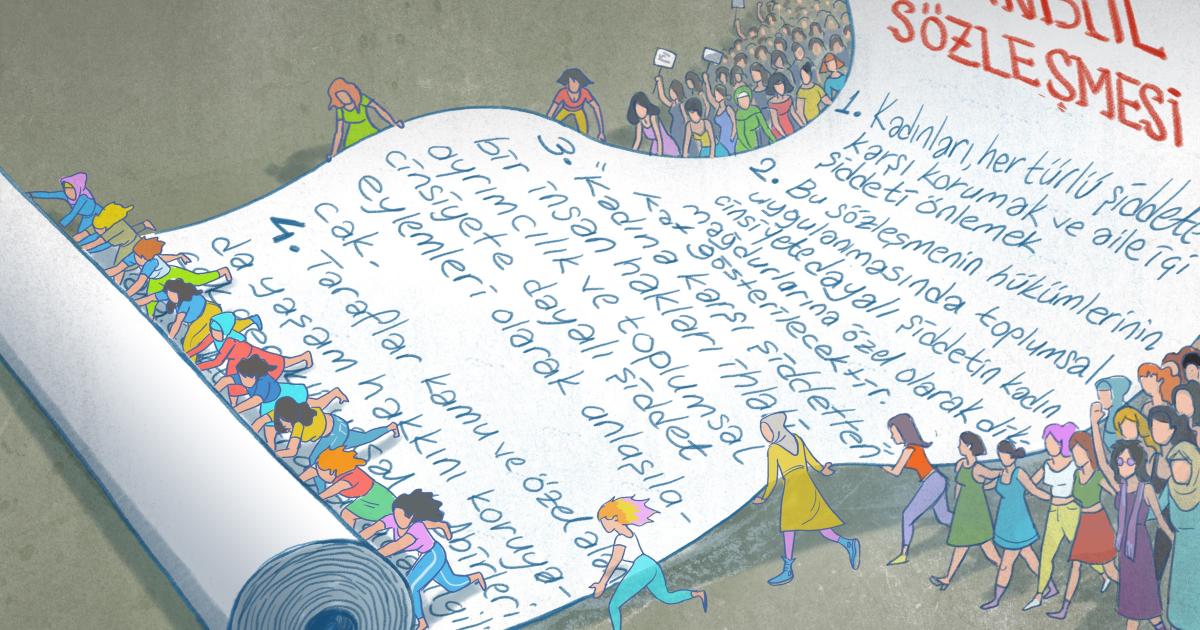 NBUL
SÖZLEŞMESİ
1. Kadınları, her türlü şiddete
karşı korumak ve aile içi
şiddeti önlemek
2. Bu sözleşmenin hükümlerinin
uygulanmasında toplumsal
cinsiyete dayalı şiddetin kadın
mağdurlarına özel olarak dik
kat gösterilecektir.
3. "Kadına karşı şiddetten"
bir insan hakları ihla-
ayrımcılık ve toplumsal
cinsiyete dayalı şiddet
eylemleri olarak anlaşıla-
cak.
4. Taraflar kamu ve özel ala
da yaşam hakkını koruya-